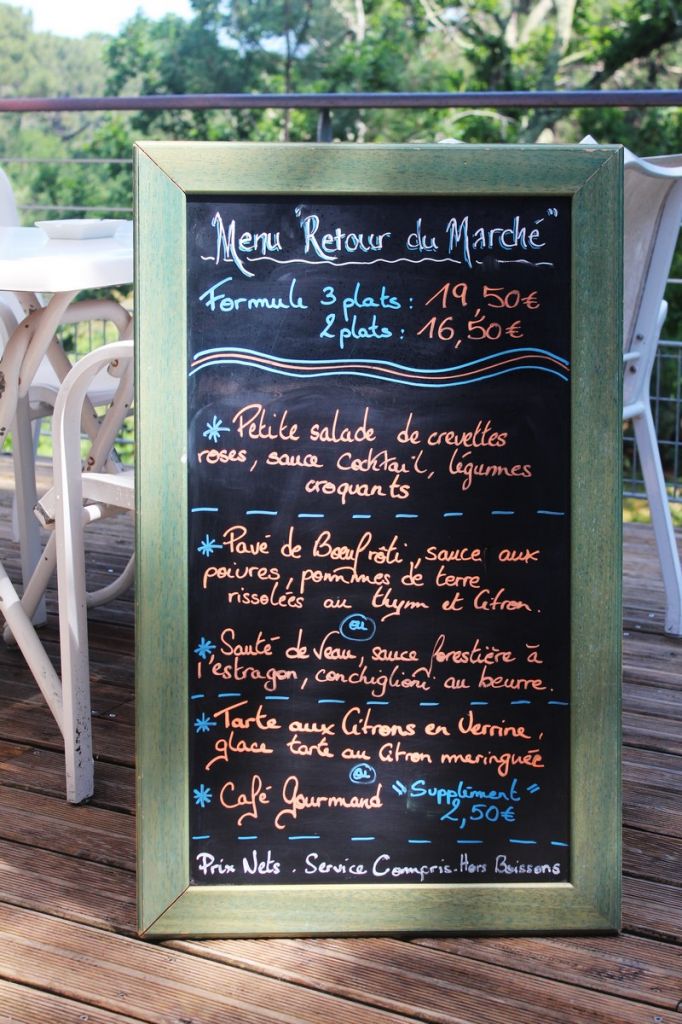 Menu "Retour du Marché"
Formule 3 plats : 19,50€
2 plats : 16,50€
* Petite salade de crevettes
roses, sauce Cocktail, légumes
croquants
* Pavé de Boeuf rôti, sauce aux
poivres, pommes de terre
rissolées au thym et Citron.
ou
* Sauté de Veau, sauce forestière à
l'estragon, conchiglioni au beurre.
* Tarte aux Citrons en Verrine,
glace tarte au Citron meringuée
ou
* Café Gourmand "Supplément"
2,50€
Prix Nets . Service Compris - Hors Boissons